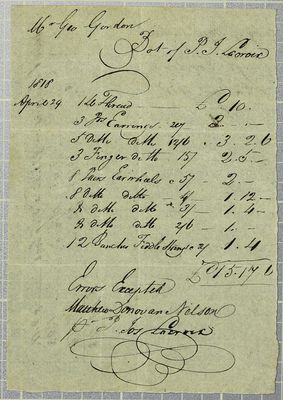 Mr Geo Gordon
Bot of P. J. Lacroix
1818
April 29 1 lb Thread £0.10.
3 Prs Earrings 20/ 3.-.-
5 ditto ditto 12/6 3.2.6
3 Finger ditto 15/ 2.5.-
8 Pairs 5/ 2.-
8 ditto ditto 4/ 1.12.-
8 ditto ditto 3/ 1.4.-
8 ditto ditto 2/6 1.-.-
12 Bunches Fiddle Strings 2/ 1.4
£15.17.6
Errors Excepted
Matthew Donovan Nelson
Jos Lacroix